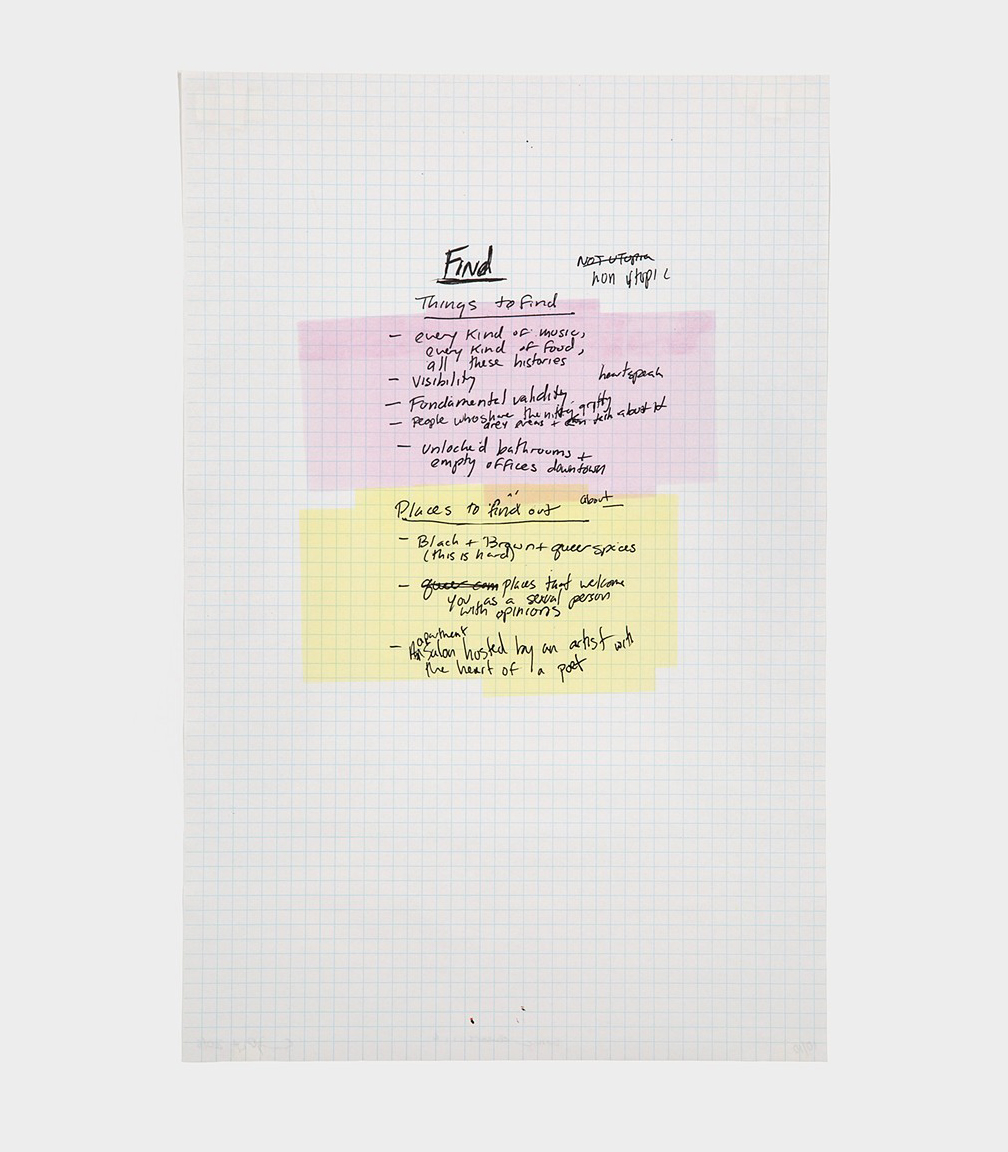 Find
NOT UTOPIA
non utopic
Things to find
- every kind of music,
every kind of food,
all these histories
- visibility
heartspeak
- Fundamental validity
- People who share the nitty gritty
grey areas + talk about it
- unlocked bathrooms +
empty offices downtown
Places to find out about
- Black + Brown + queer spaces
(this is hard)
- places that welcome
you as a sexual person
with opinions
- apartment
Salon hosted by an artist with
the heart of a poet